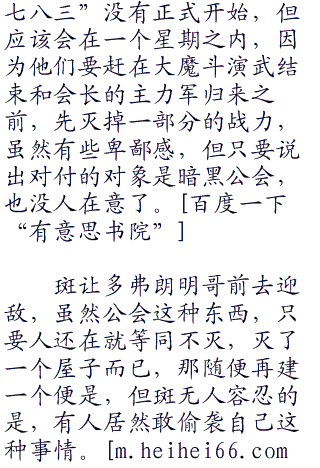 七八三”没有正式开始，但
应该会在一个星期之内，因
为他们要赶在大魔斗演武结
束和会长的主力军归来之
前，先灭掉一部分的战力，
虽然有些卑鄙感，但只要说
出对付的对象是暗黑公会，
也没人在意了。[百度一下
“有意思书院”]
斑让多弗朗明哥前去迎
敌，虽然公会这种东西，只
要人还在就等同不灭，灭了
一个屋子而已，那随便再建
一个便是，但斑无人容忍的
是，有人居然敢偷袭自己这
种事情。[m.heihei66.com